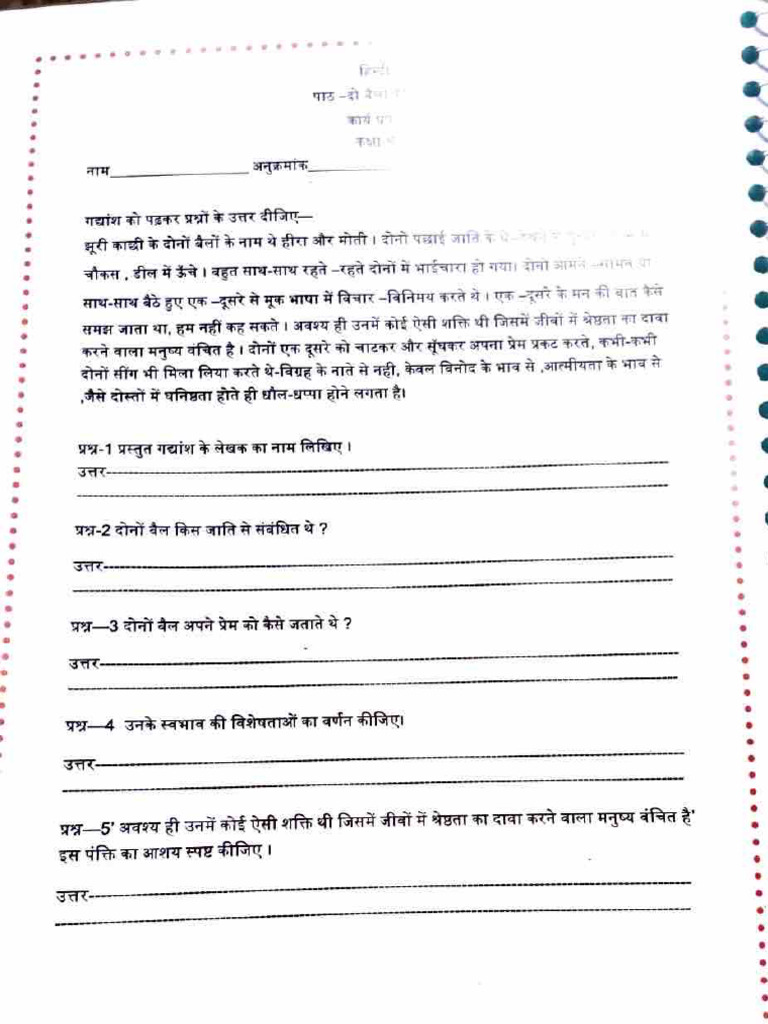 हिन्दी
पाठ –दो बैलों
कार्य
कक्षा
नाम________________ अनुक्रमांक____________
गद्यांश को पढ़कर प्रश्नों के उत्तर दीजिए—
झूरी काछी के दोनों बैलों के नाम थे हीरा और मोती । दोनों पछाई जाति के थे
चौकस , डील में ऊँचे । बहुत साथ-साथ रहते –रहते दोनों में भाईचारा हो गया। दोनों आमने –सामने या
साथ-साथ बैठे हुए एक –दूसरे से मूक भाषा में विचार –विनिमय करते थे । एक –दूसरे के मन की बात कैसे
समझ जाता था, हम नहीं कह सकते । अवश्य ही उनमें कोई ऐसी शक्ति थी जिसमें जीवों में श्रेष्ठता का दावा
करने वाला मनुष्य वंचित है । दोनों एक दूसरे को चाटकर और सूँघकर अपना प्रेम प्रकट करते, कभी-कभी
दोनों सींग भी मिला लिया करते थे-विग्रह के नाते से नही, केवल विनोद के भाव से ,आत्मीयता के भाव से
,जैसे दोस्तों में घनिष्ठता होते ही धौल-धप्पा होने लगता है।
प्रश्न-1 प्रस्तुत गद्यांश के लेखक का नाम लिखिए ।
उत्तर------------------------------------------------
प्रश्न-2 दोनों बैल किस जाति से संबंधित थे ?
उत्तर------------------------------------------------
प्रश्न—3 दोनों बैल अपने प्रेम को कैसे जताते थे ?
उत्तर------------------------------------------------
प्रश्न—4 उनके स्वभाव की विशेषताओं का वर्णन कीजिए।
उत्तर------------------------------------------------
प्रश्न—5' अवश्य ही उनमें कोई ऐसी शक्ति थी जिसमें जीवों में श्रेष्ठता का दावा करने वाला मनुष्य वंचित है'
इस पंक्ति का आशय स्पष्ट कीजिए ।
उत्तर------------------------------------------------